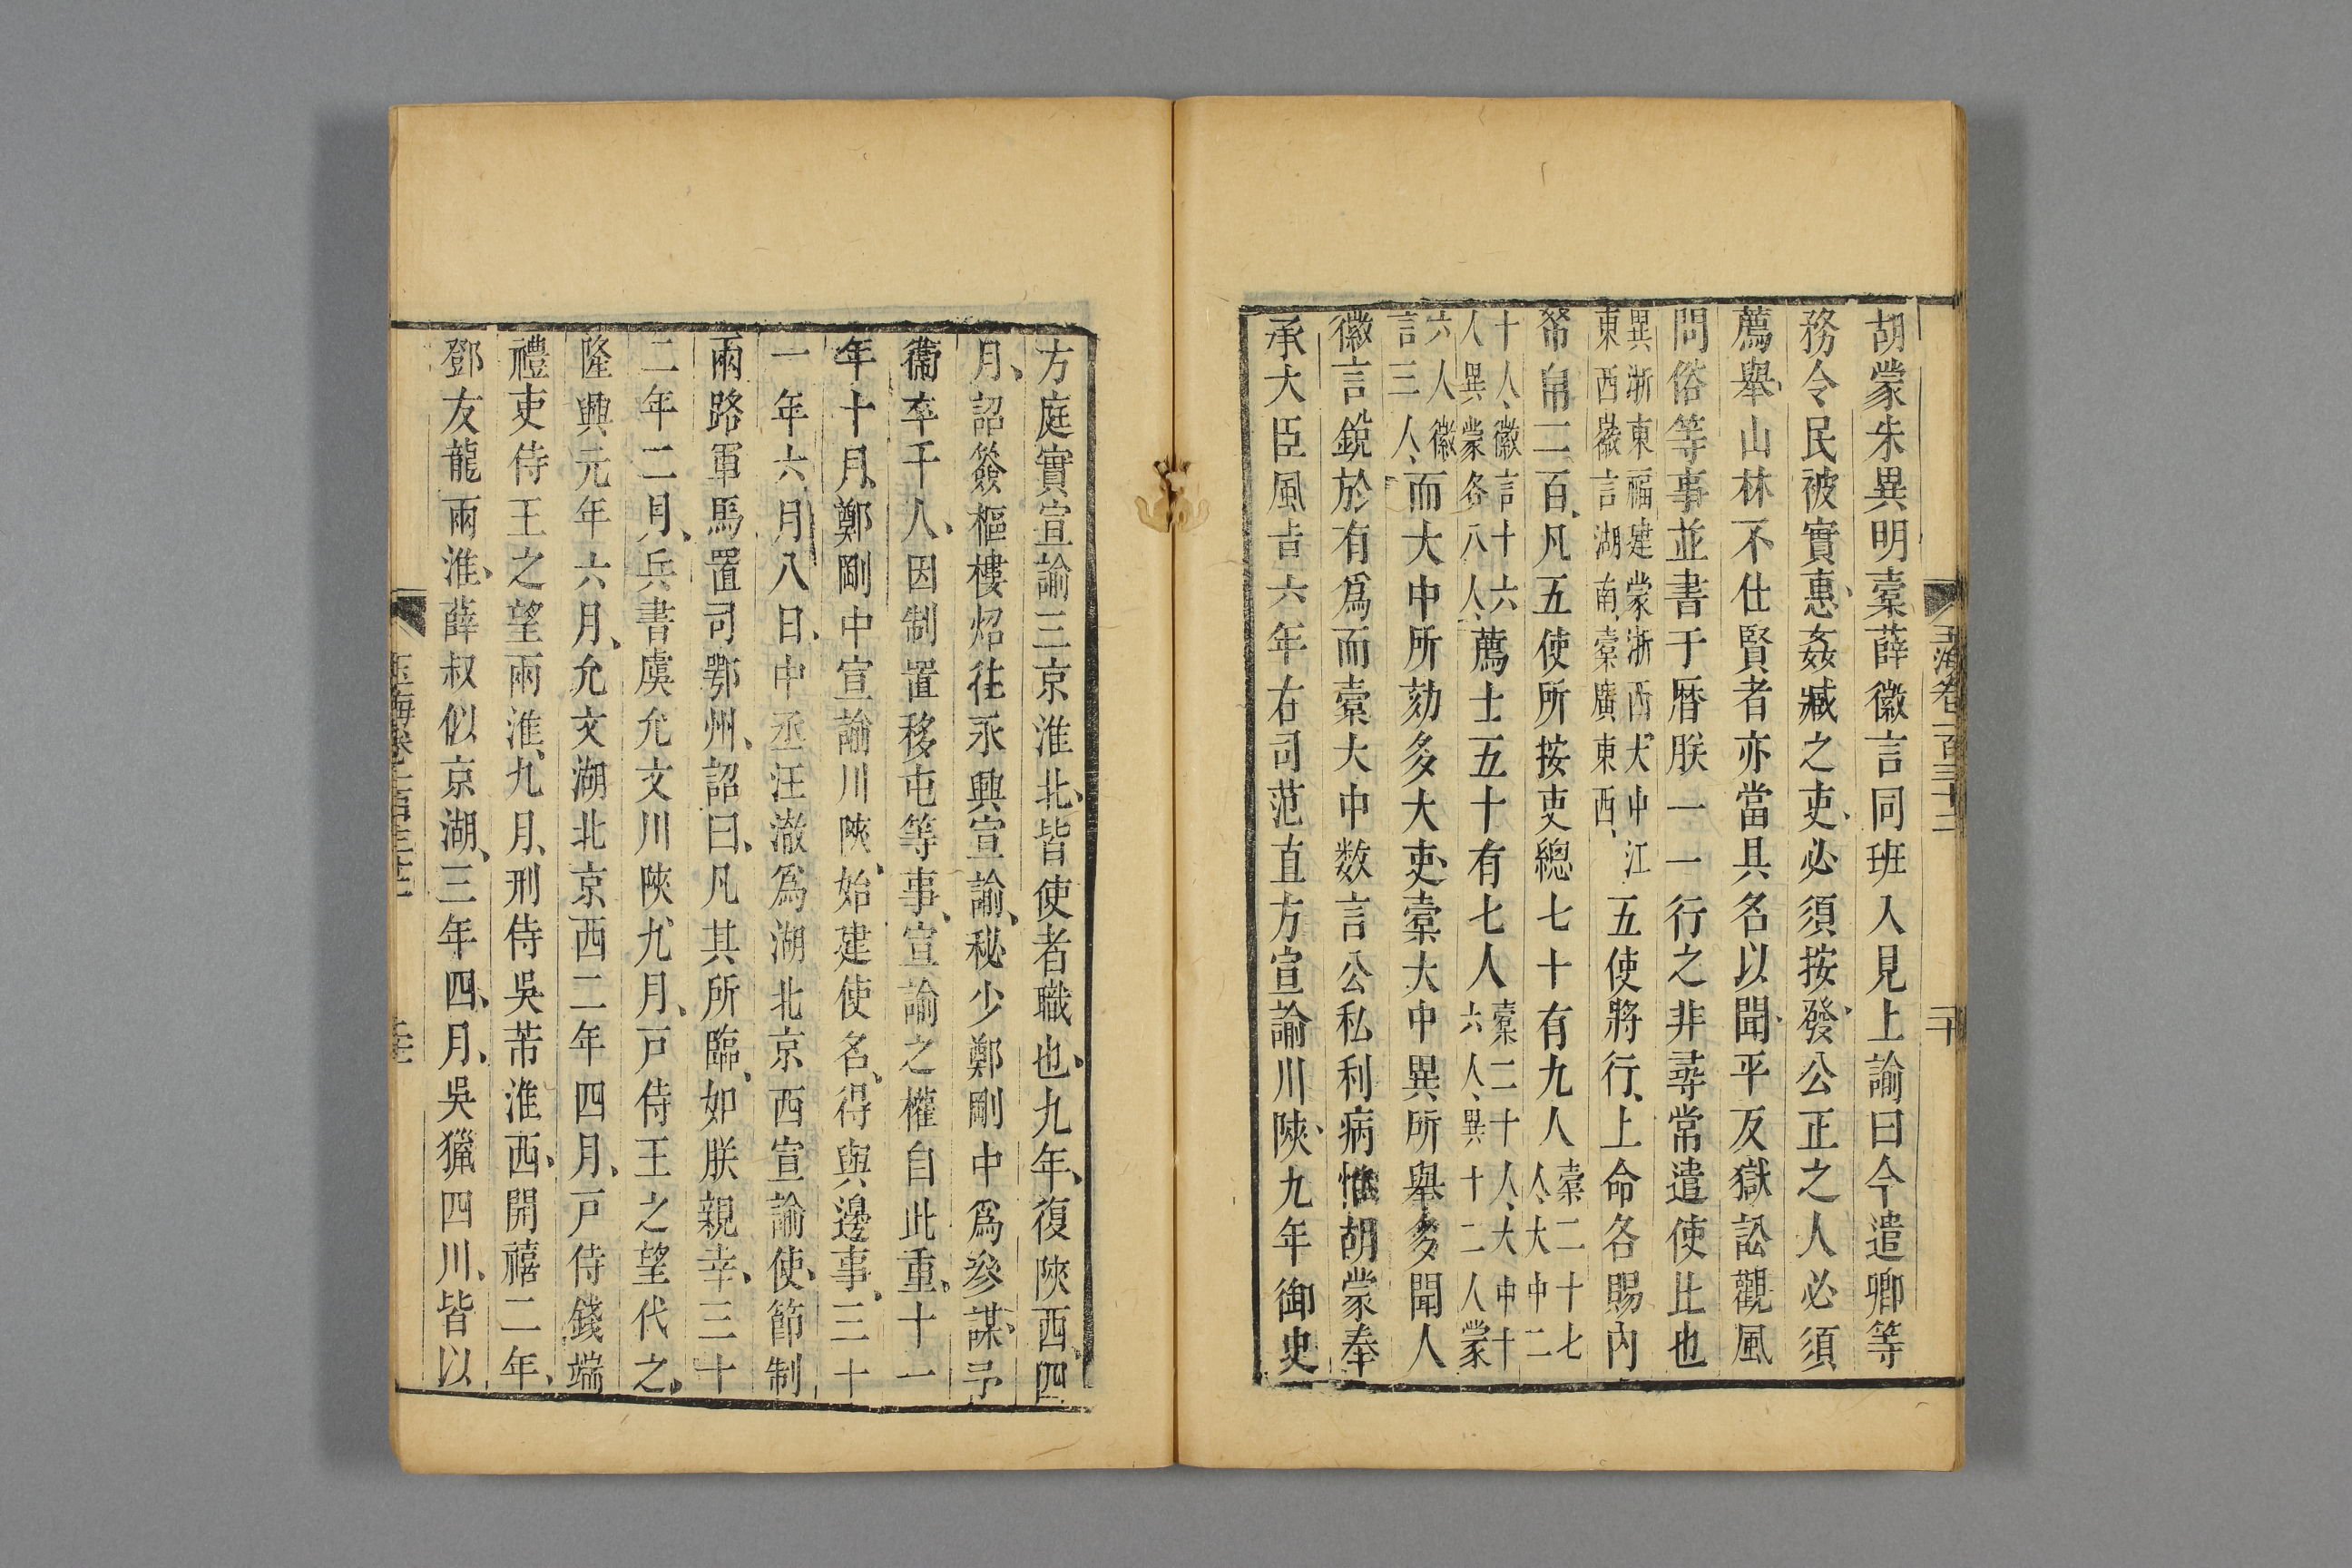 胡蒙朱異明橐薛徽言同班入見上諭曰今遣卿等
務令民被實惠姦臧之吏必須按發公正之人必須
薦舉山林不仕賢者亦當具名以聞平反獄訟觀風
問俗等事並書于曆朕一一行之非尋常遣使比也
異浙東福建蒙浙西大中江
東西徽言湖南橐廣東西
五使將行上命各賜內
帑帛二百凡五使所按吏總七十有九人
橐二十七
人大中二
十人徽言十六
人異蒙各八人
薦士五十有七人
橐二十人大中十
六人異十二人蒙
六人徽
言三人
而大中所劾多大吏橐大中異所舉多聞人
徽言銳於有爲而橐大中数言公私利病惟胡蒙奉
承大臣風㫖六年右司范直方宣諭川陝九年御史
玉海卷一百三十二
二十
方庭實宣諭三京淮北皆使者職也九年復陝西四
月詔簽樞樓炤往永興宣諭秘少鄭剛中爲參謀予
衞卒千人因制置移屯等事宣諭之權自此重十一
年十月鄭剛中宣諭川陝始建使名得與邊事三十
一年六月八日中丞汪澈爲湖北京西宣諭使節制
兩路軍馬置司鄂州詔曰凡其所臨如朕親幸三十
二年二月兵書虞允文川陝九月戸侍王之望代之
隆興元年六月允文湖北京西二年四月戸侍錢端
禮吏侍王之望兩淮九月刑侍吳芾淮西開禧二年
鄧友龍兩淮薛叔似京湖三年四月吳獵四川皆以